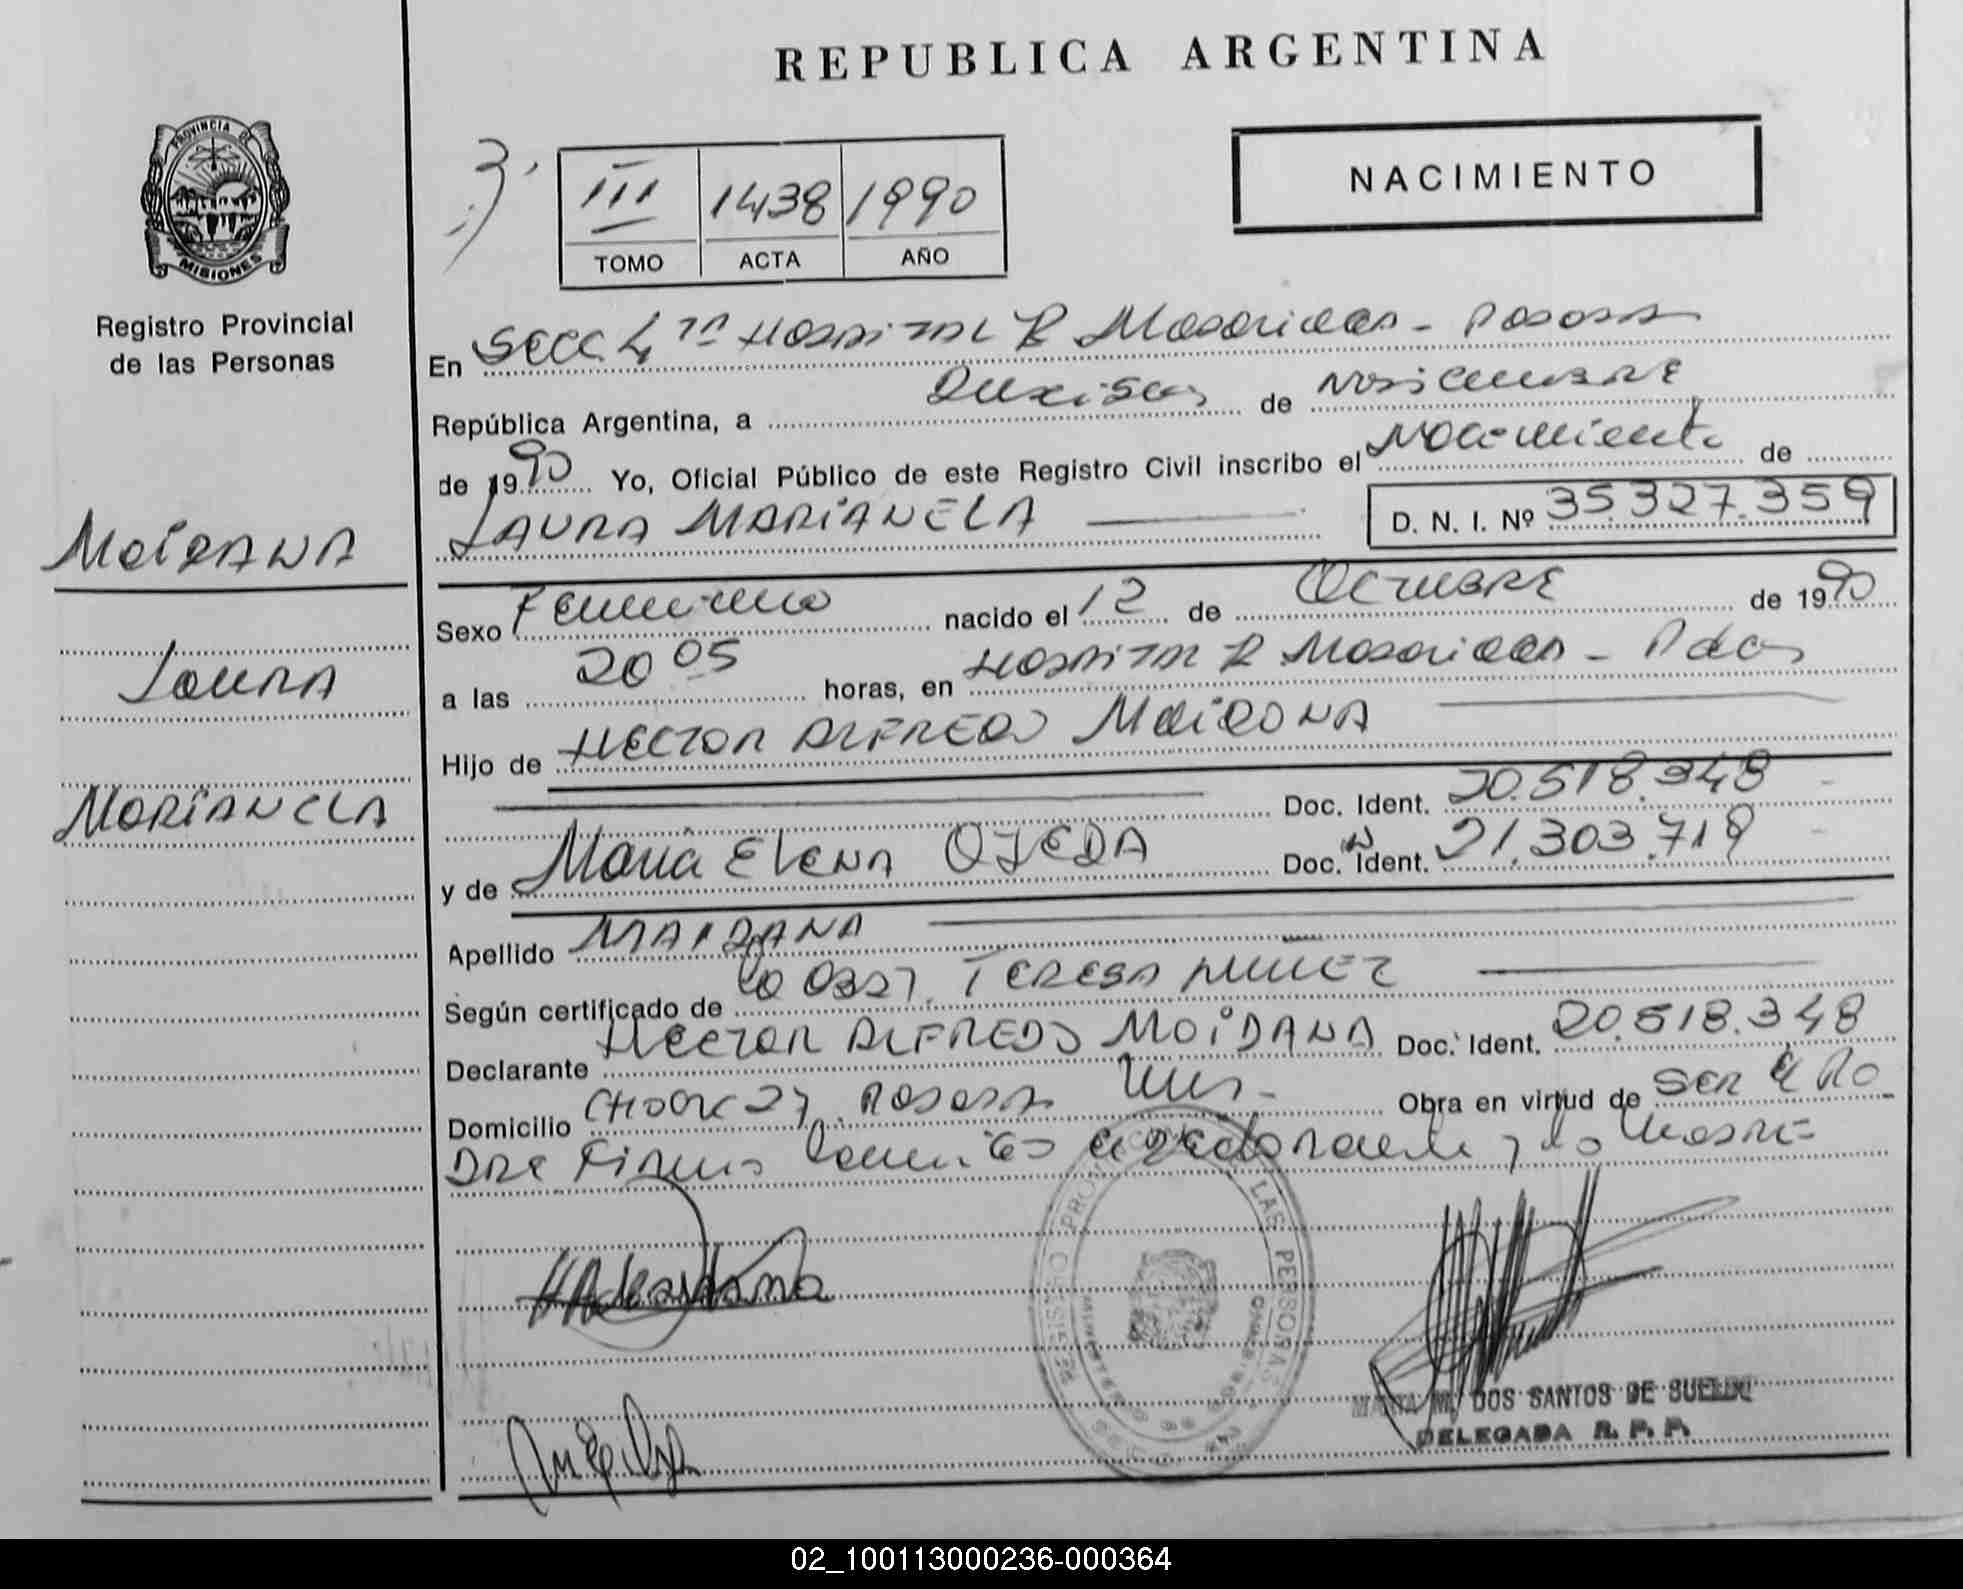 REPUBLICA ARGENTINA
PROVINCIA DE
MISIONES
Registro Provincial
de las Personas
III 1438 1990
TOMO ACTA AÑO
NACIMIENTO
En Secc 4ta Hospital R Madariaga - Posadas
República Argentina, a Dieciseis de Noviembre
de 1990 Yo, Oficial Público de este Registro Civil inscribo el Nacimiento de
LAURA MARIANELA D. N. I. Nº 35.327.359
MAIDANA
LAURA
MARIANELA
Sexo Femenino nacido el 12 de Octubre de 1990
a las 20 05 horas, en Hospital R Madariaga - Pdas
Hijo de HECTOR ALFREDO MAIDANA
Doc. Ident. 20.518.348
y de Maria ELENA OJEDA Doc. Ident. 21.303.719
Apellido MAIDANA
Según certificado de la Obst. TERESA NUÑEZ
Declarante HECTOR ALFREDO MAIDANA Doc. Ident. 20.518.348
Domicilio 27 Posadas Mns - Obra en virtud de ser el Pa
dre Firma el declarante y la Madre
PERSONAS
MARIA M. DOS SANTOS DE SUELDO
DELEGADA R. P. P.
02_100113000236-000364